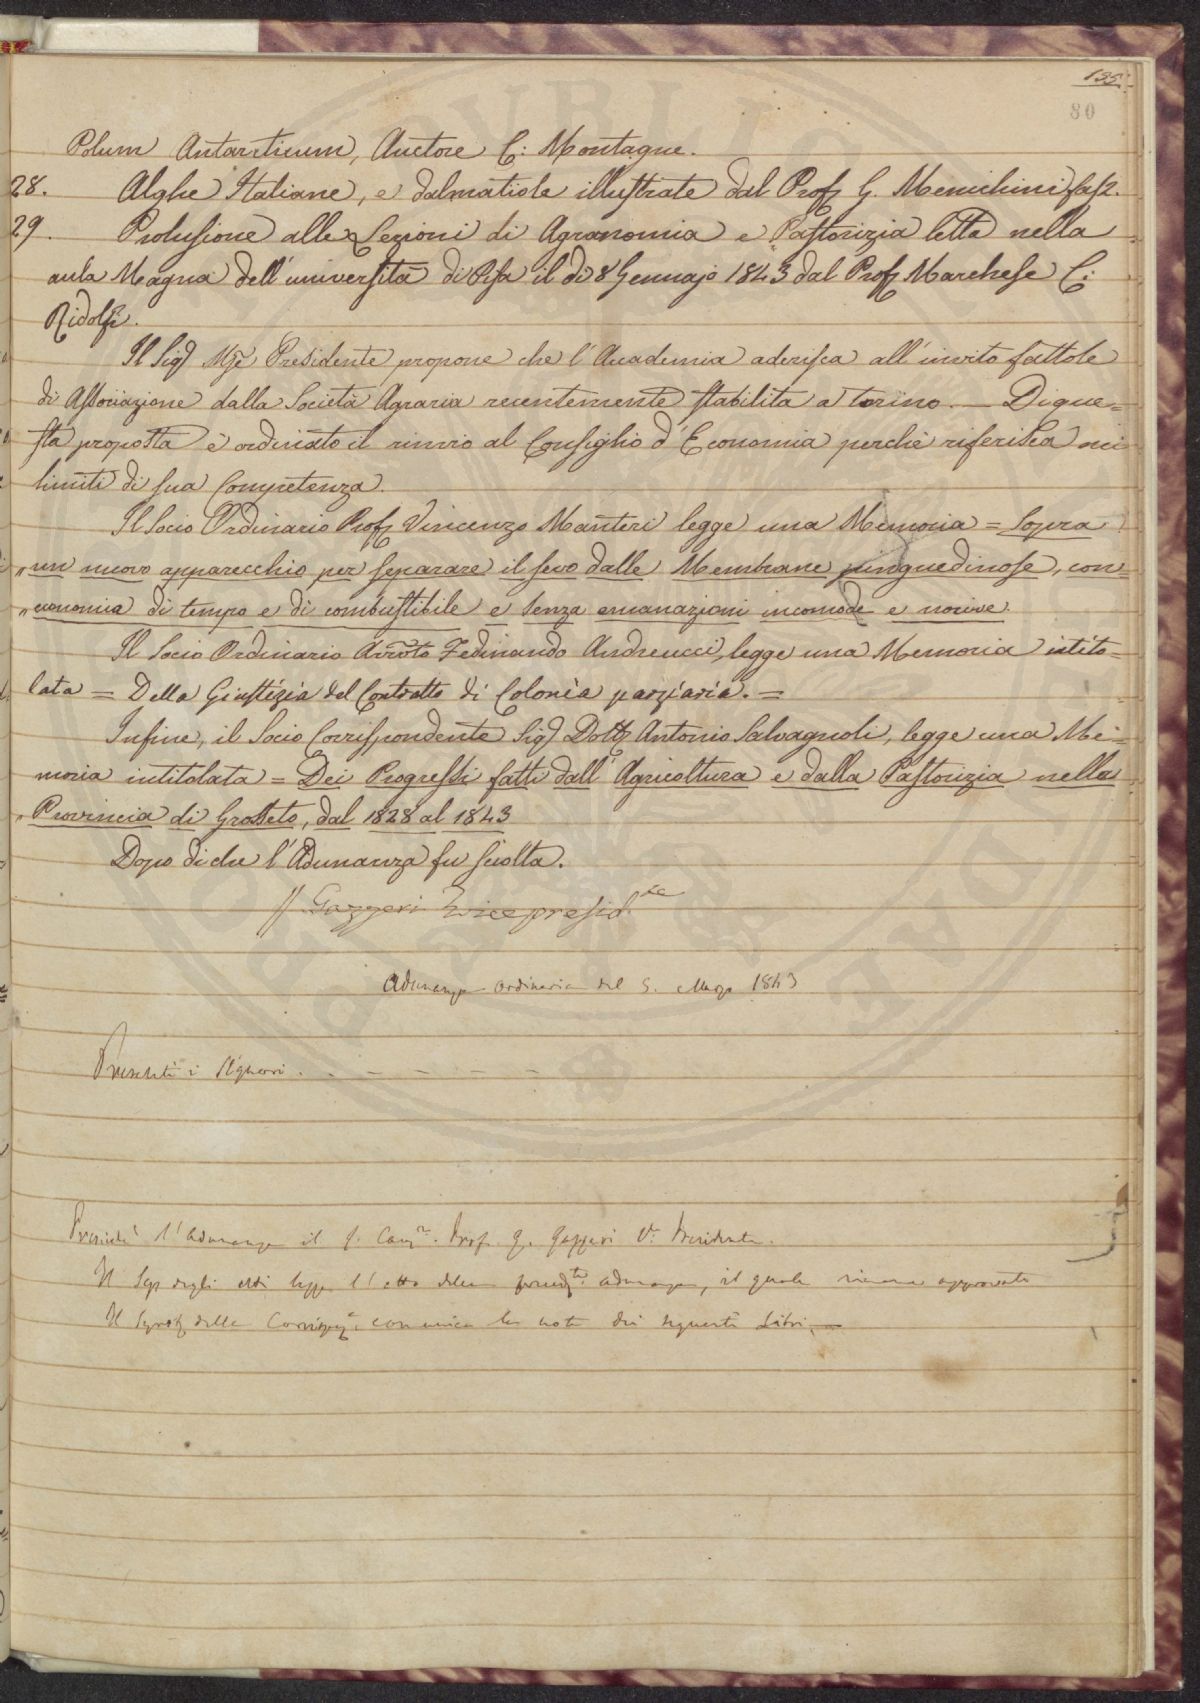 155.
80
Polum Antarcticum, Auctore C: Montagne.
28. Alghe Italiane, e dalmatiche illustrate dal Prof. G. Meneghini fas. 2.
29. Prolusione alle Lezioni di Agronomia e Pastorizia letta nella
aula Magna dell'università di Pisa il dì 8 Gennajo 1843 dal Prof. Marchese C:
Ridolfi.
Il Sig. Mse Presidente propone che l'Accademia aderisca all'invito fattole
di Associazione dalla Società Agraria recentemente stabilita a Torino. — Di que=
sta proposta è ordinato il rinvio al Consiglio d'Economia perchè riferisca nei
limiti di sua Competenza.
Il Socio Ordinario Prof. Vincenzo Manteri legge una Memoria = Sopra
„un nuovo apparecchio per separare il sevo dalle Membrane pinguedinose, con=
„economia di tempo e di combustibile e senza emanazioni incomode e nocive.
Il Socio Ordinario Avvoto Fedinando Andreucci, legge una Memoria intito-
lata = Della Giustizia del Contratto di Colonìa parziaria. =
Infine, il Socio Corrispondente Sig. Dott. Antonio Salvagnoli, legge una Me=
moria intitolata = Dei Progressi fatti dall'Agricoltura e dalla Pastorizia nella
„Provincia di Grosseto, dal 1828 al 1843
Dopo di che l'Adunanza fu sciolta.
G. Gazzeri Vicepresid.te
Adunanza ordinaria del 5. Marzo 1843
Presenti i Signori . . - - - - -
Presiede l'adunanza il S. Cav.re Prof. G. Gazzeri V. Presidente.
Il Seg. degli atti legge l'atto della preced.te adunanza, il quale rimane approvato
Il Segret. delle Corrisp.e comunica la nota dei seguenti Libri. —